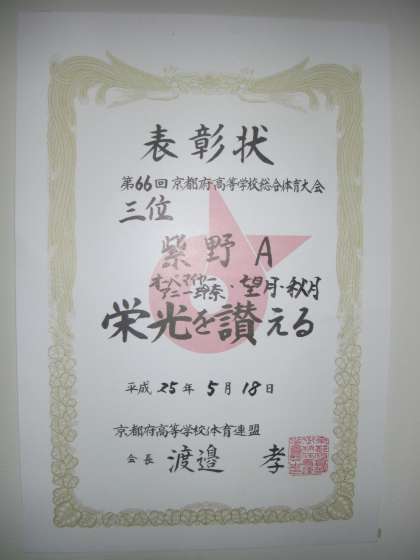 表彰状
第66回京都府高等学校総合体育大会
三位
紫野 A
オッペマイヤー
アニー玲奈・望月・秋月
栄光を讃える
平成 25年 5月 18日
京都府高等学校体育連盟
会長 渡邉 孝